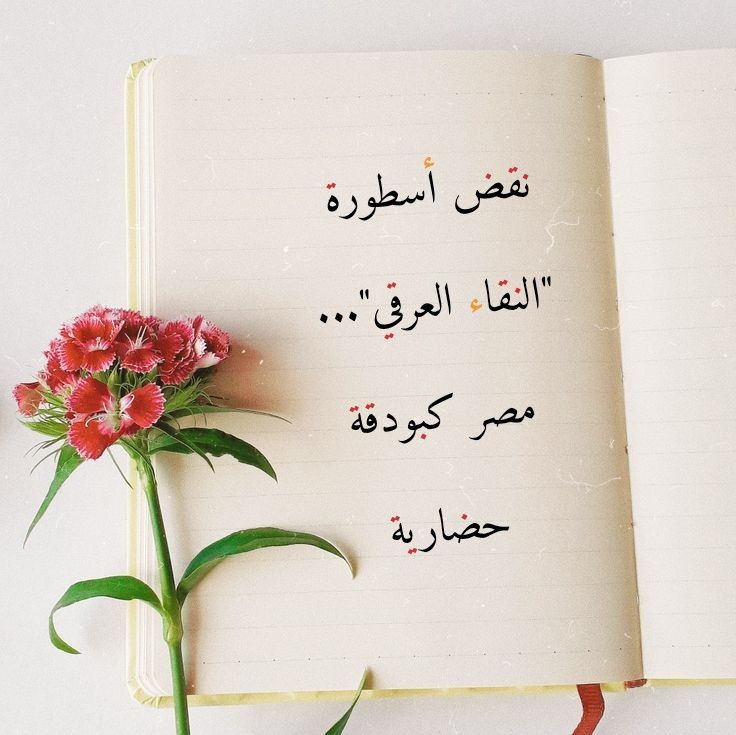 نقض أسطورة
"النقاء العرقي"...
مصر كبودقة
حضارية